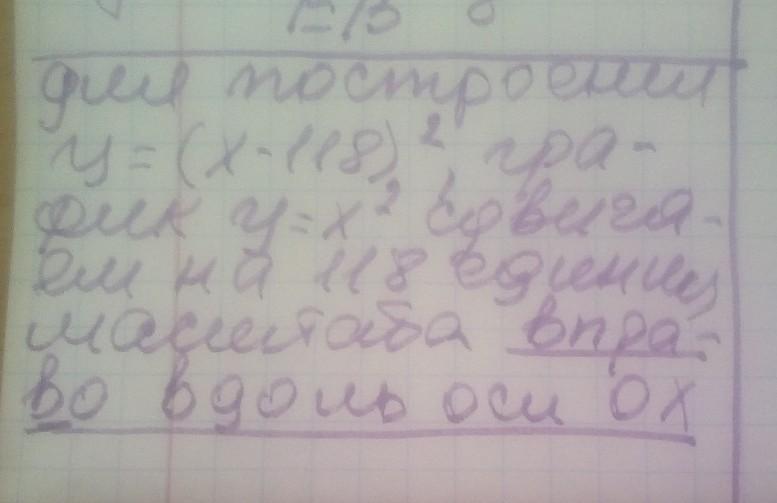 для построения
y = (x - 118)², гра-
фик y = x² сдвига-
ем на 118 единиц
масштаба впра-
во вдоль оси OX